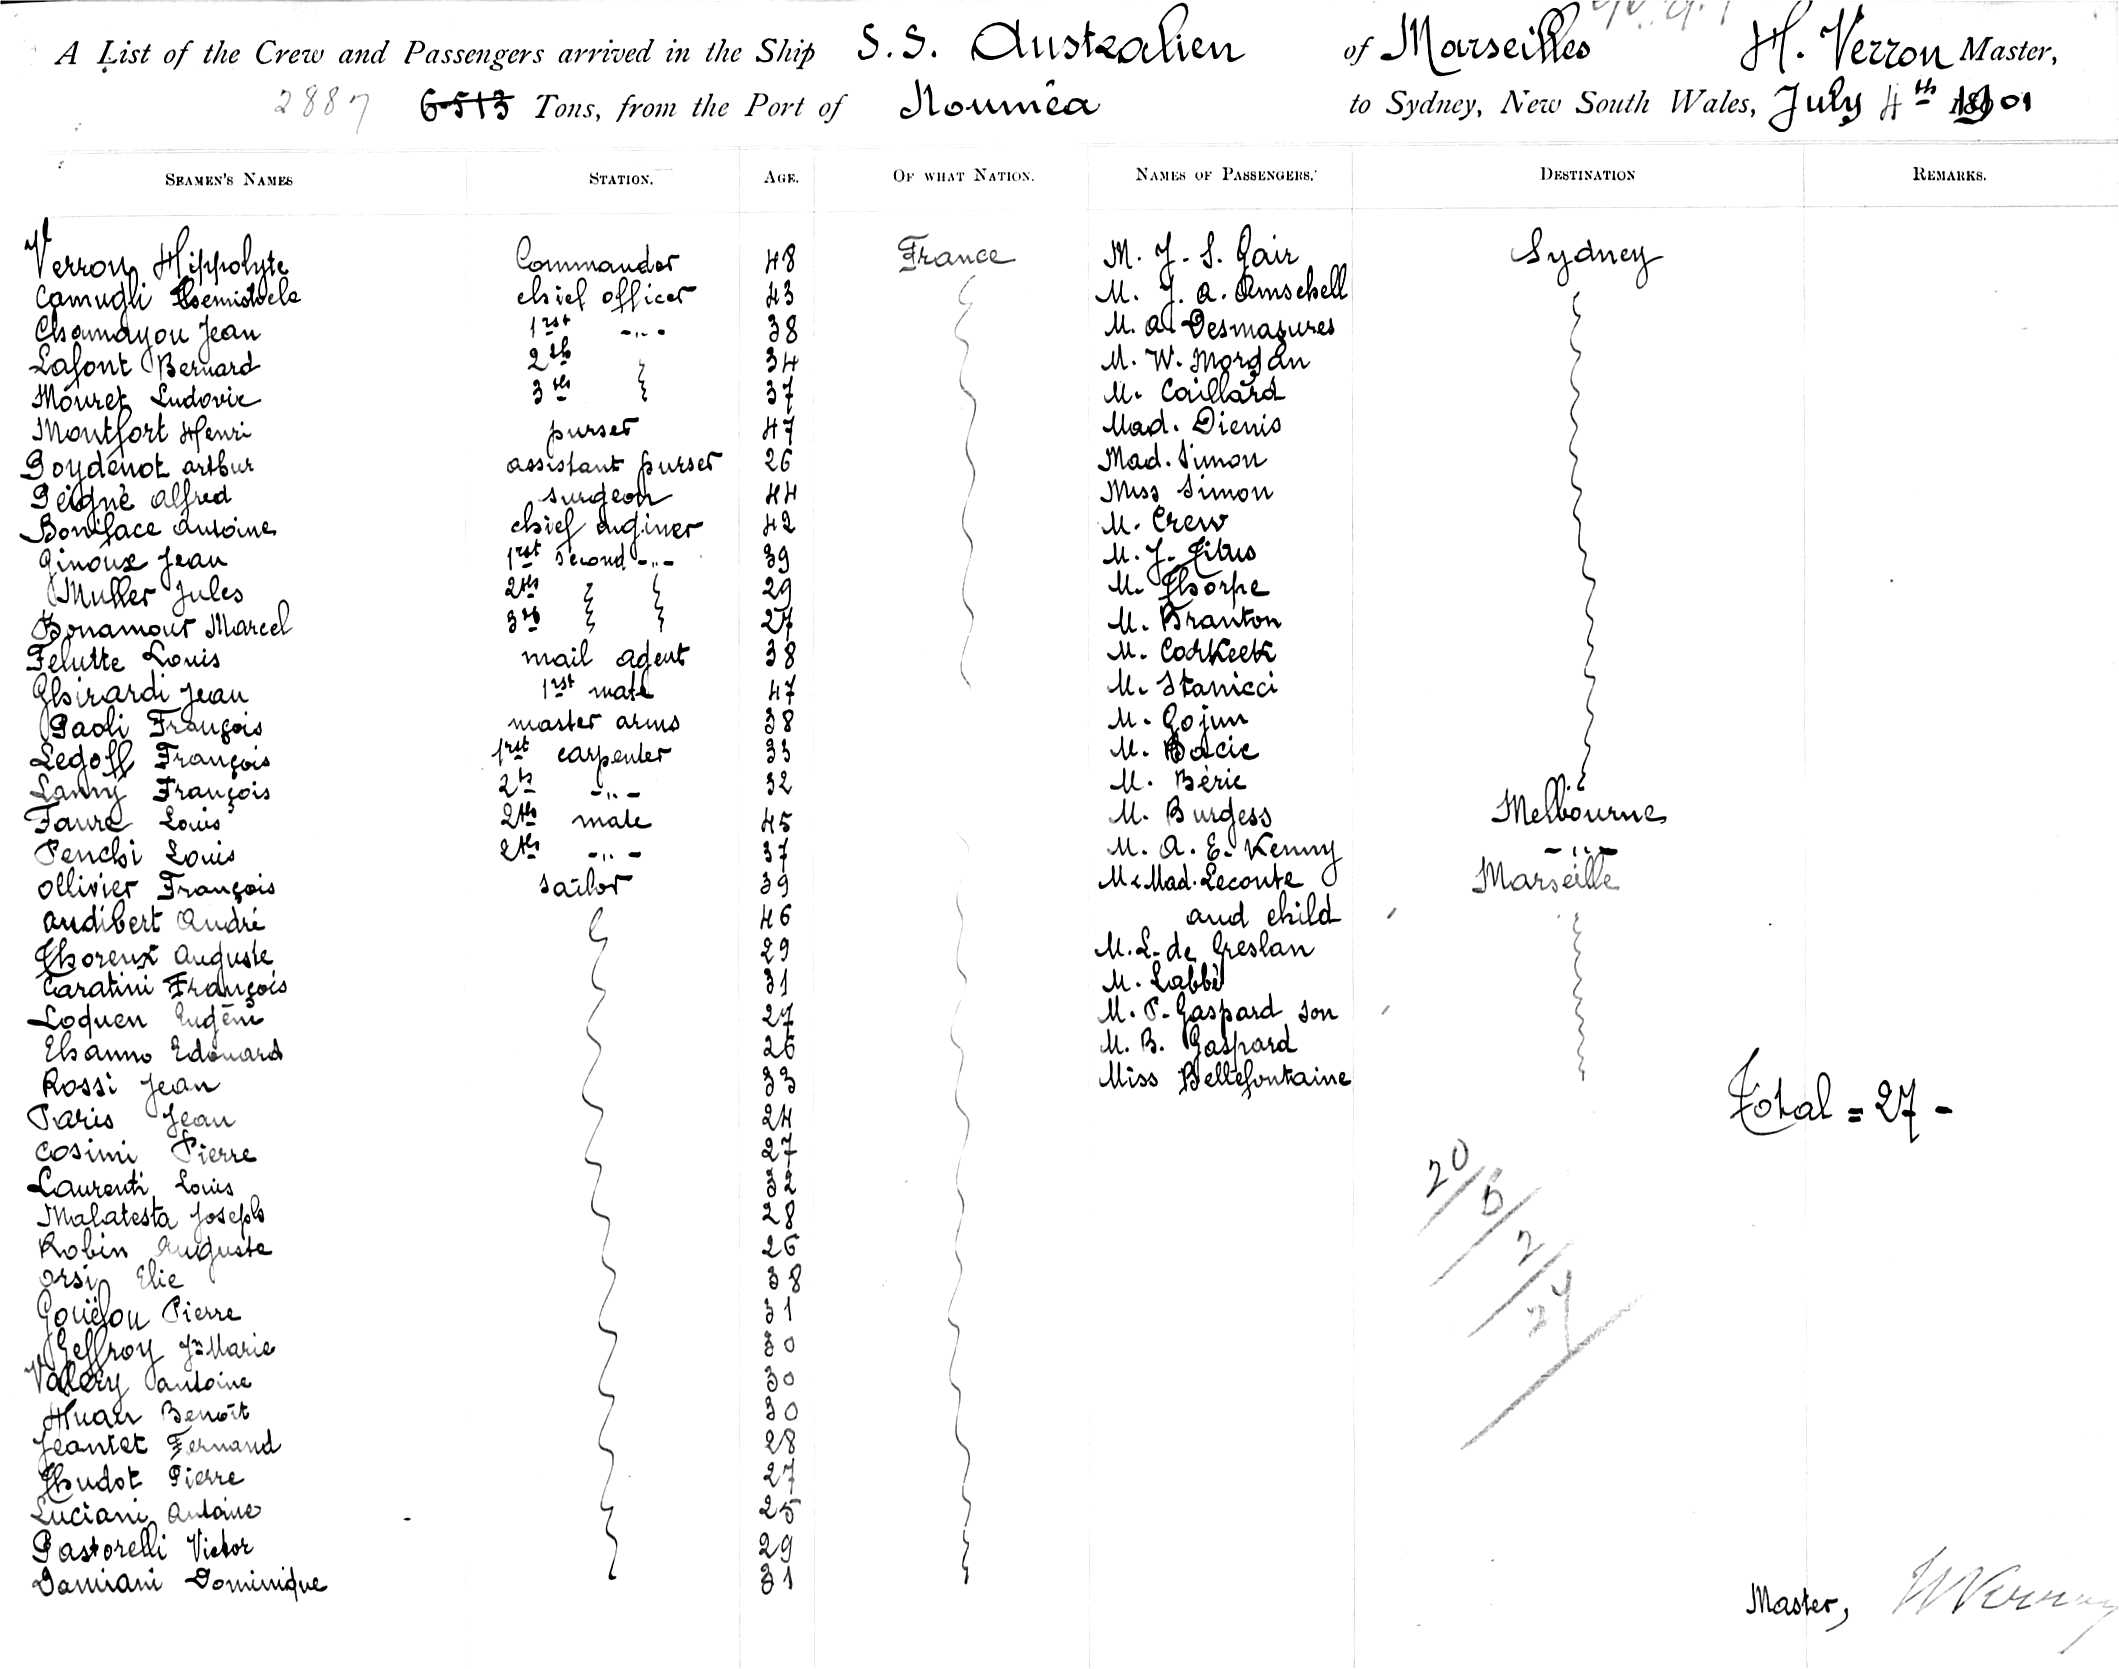 A List of the Crew and Passengers arrived in the Ship S.S. Australien of Marseilles H. Verron Master,
2887 6513 Tons, from the Port of Nouméa to Sydney, New South Wales, July 4th 1901
SEAMEN'S NAMES STATION. AGE. OF WHAT NATION. NAMES OF PASSENGERS. DESTINATION REMARKS.
Verron Hippolyte Commander 48 France M. J. S. Gair Sydney
Camugli Themistocle chief officer 43 M. J. A. Amschell
Chamayou Jean 1rst -"- 38 M. A. Desmasures
Lafont Bernard 2th 34 M. W. Morgan
Mouret Ludovic 3th 37 M. Caillard
Montfort Henri purser 47 Mad. Dienis
Poydenot arthur assistant purser 26 Mad. Simon
Peigné Alfred surgeon 44 Miss Simon
Boniface Antoine chief enginer 42 M. Crew
Ginoux Jean 1rst second -"- 39 M. J. Titus
Muller Jules 2th 29 M. Thorpe
Bonamour Marcel 3th 27 M. Branton
Felutte Louis mail agent 38 M. Corkeek
Ghirardi Jean 1rst mate 47 M. Stanicci
Paoli François master arms 38 M. Gojun
Legoff François 1rst carpenter 33 M. Bacic
Lanny François 2th -"- 32 M. Béric
Faure Louis 2th mate 45 M. Burgess Melbourne
Penchi Louis 2th -"- 37 M. A. E. Kenny -"-
Ollivier François sailor 39 M & Mad. Leconte Marseille
Audibert André 46 and child
Thoreux Auguste 29 M. L. de Greslan
Caratini François 31 M. Labbé
Loquen Eugène 27 M. P. Gaspard son
Ehanno Edouard 26 M. B. Gaspard
Rossi Jean 33 Miss Bellefontaine
Paris Jean 24 Total = 27 -
Cosimi Pierre 27
Laurenti Louis 32
Malatesta Joseph 28
Robin Auguste 26
Orsi Elie 38
Gouëlou Pierre 31
Geffroy Jn Marie 30
Valéry Antoine 30
Huan Benoît 30
Jeantet Fernand 28
Thudot Pierre 27
Luciani Antoine 25
Pastorelli Victor 29
Damiani Dominique 31
20/5/2/27
Master, H Verron